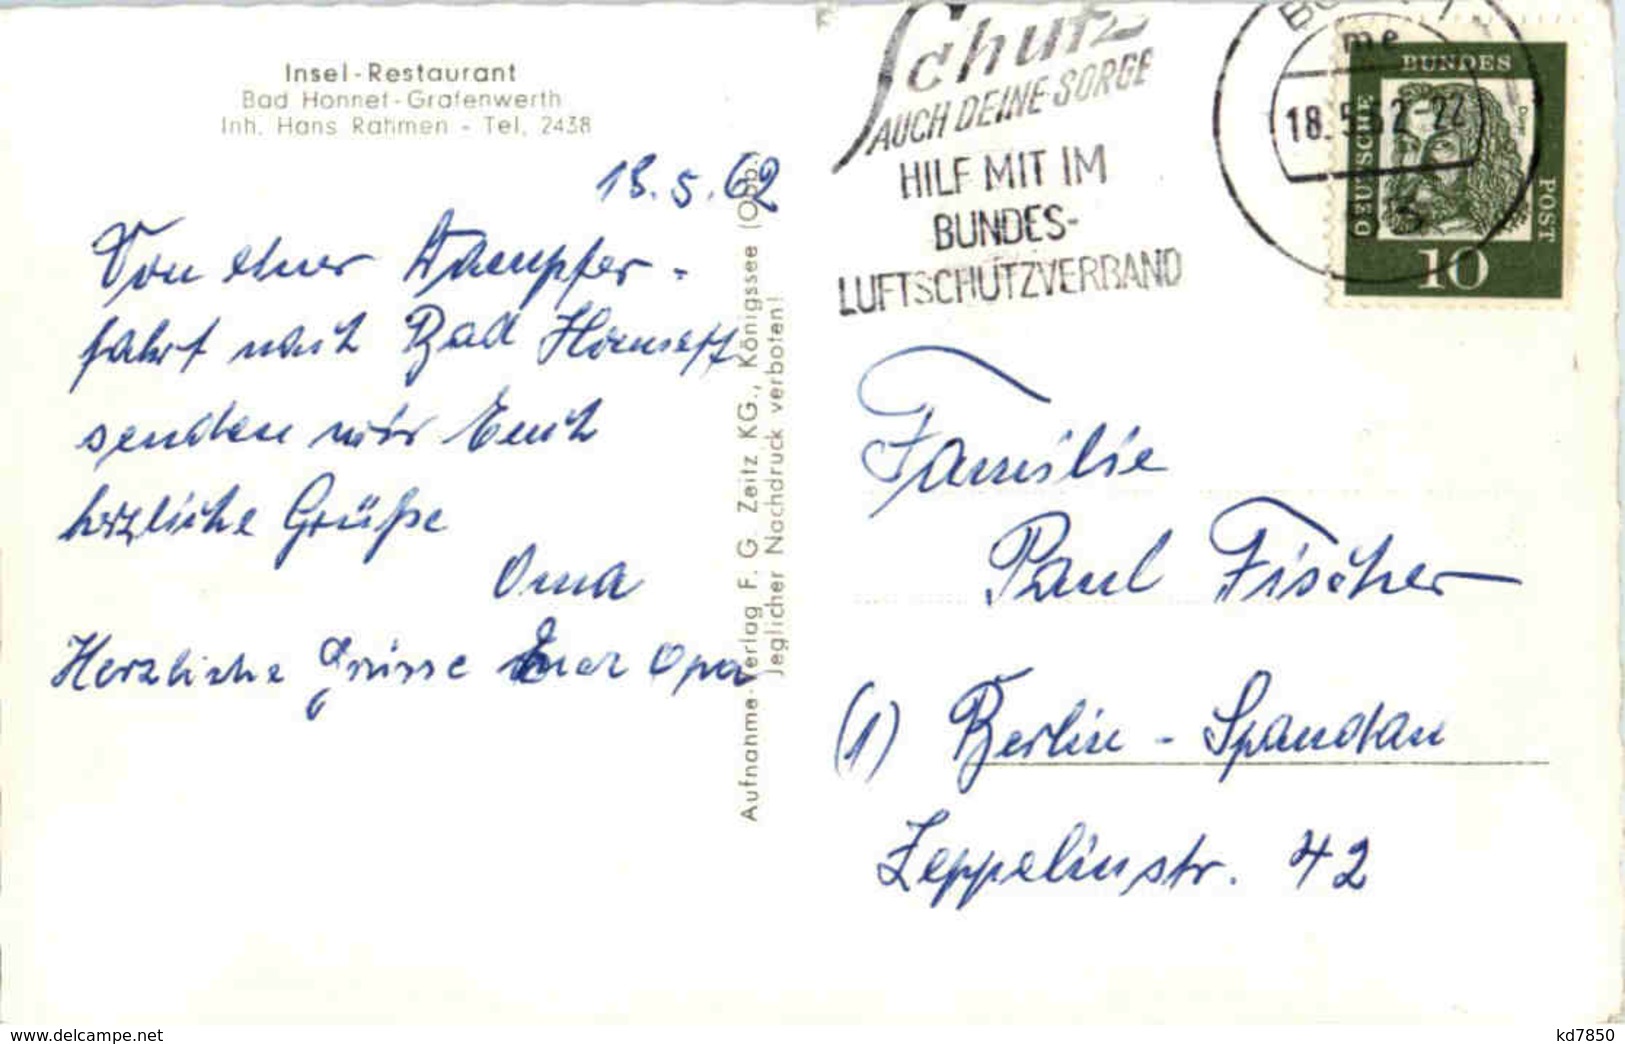 Insel-Restaurant
Bad Honnef-Grafenwerth
Inh. Hans Rahmen - Tel. 2438
18.5.62
Von einer Dampfer-
fahrt nach Bad Honneff
senden wir Euch
herzliche Grüße
Oma
Herzliche Grüsse Euer Opa
Aufnahme-Verlag F. G. Zeitz KG., Königssee (Obb.)
Jeglicher Nachdruck verboten!
Schutz
AUCH DEINE SORGE
HILF MIT IM
BUNDES-
LUFTSCHUTZVERBAND
me
18.5.62-22
DEUTSCHE
BUNDES
POST
Dürer
10
Familie
Paul Fischer
(1) Berlin - Spandau
Zeppelinstr. 42
www.delcampe.net
kd7850